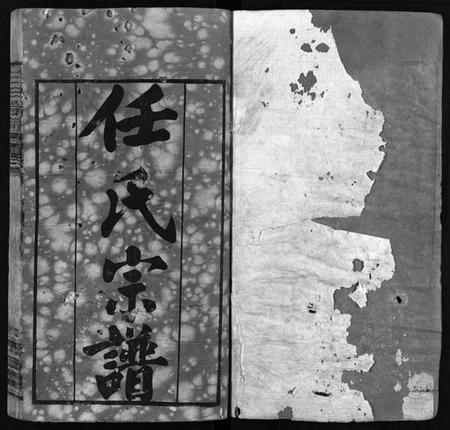 任氏宗譜